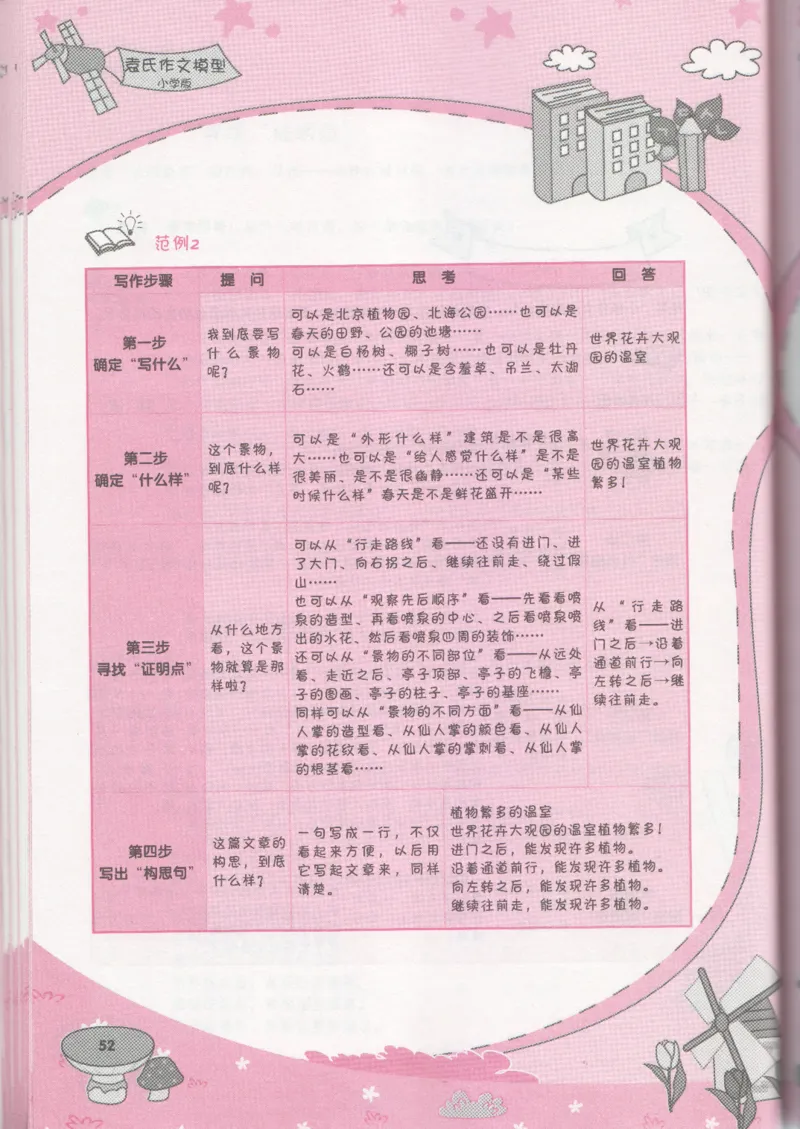 袁氏作文模型
小学版
范例2
写作步骤 提 问 思 考 回 答
第一步
确定“写什么”
我到底要写
什么景物
呢？
可以是北京植物园、北海公园……也可以是
春天的田野、公园的池塘……
可以是白杨树、椰子树……也可以是牡丹
花、火鹤……还可以是含羞草、吊兰、太湖
石……
世界花卉大观
园的温室
第二步
确定“什么样”
这个景物，
到底什么样
呢？
可以是“外形什么样”建筑是不是很高
大……也可以是“给人感觉什么样”是不是
很美丽、是不是很幽静……还可以是“某些
时候什么样”春天是不是鲜花盛开……
世界花卉大观
园的温室植物
繁多！
第三步
寻找“证明点”
从什么地方
看，这个景
物就算是那
样啦？
可以从“行走路线”看——还没有进门、进
了大门、向右拐之后、继续往前走、绕过假
山……
也可以从“观察先后顺序”看——先看看喷
泉的造型、再看喷泉的中心、之后看喷泉喷
出的水花、然后看喷泉四周的装饰……
还可以从“景物的不同部位”看——从远处
看、走近之后、亭子顶部、亭子的飞檐、亭
子的图画、亭子的柱子、亭子的基座……
同样可以从“景物的不同方面”看——从仙
人掌的造型看、从仙人掌的颜色看、从仙人
掌的花纹看、从仙人掌的掌刺看、从仙人掌
的根茎看……
从“行走路
线”看——进
门之后→沿着
通道前行→向
左转之后→继
续往前走。
第四步
写出“构思句”
这篇文章的
构思，到底
什么样？
一句写成一行，不仅
看起来方便，以后用
它写起文章来，同样
清楚。
植物繁多的温室
世界花卉大观园的温室植物繁多！
进门之后，能发现许多植物。
沿着通道前行，能发现许多植物。
向左转之后，能发现许多植物。
继续往前走，能发现许多植物。
52